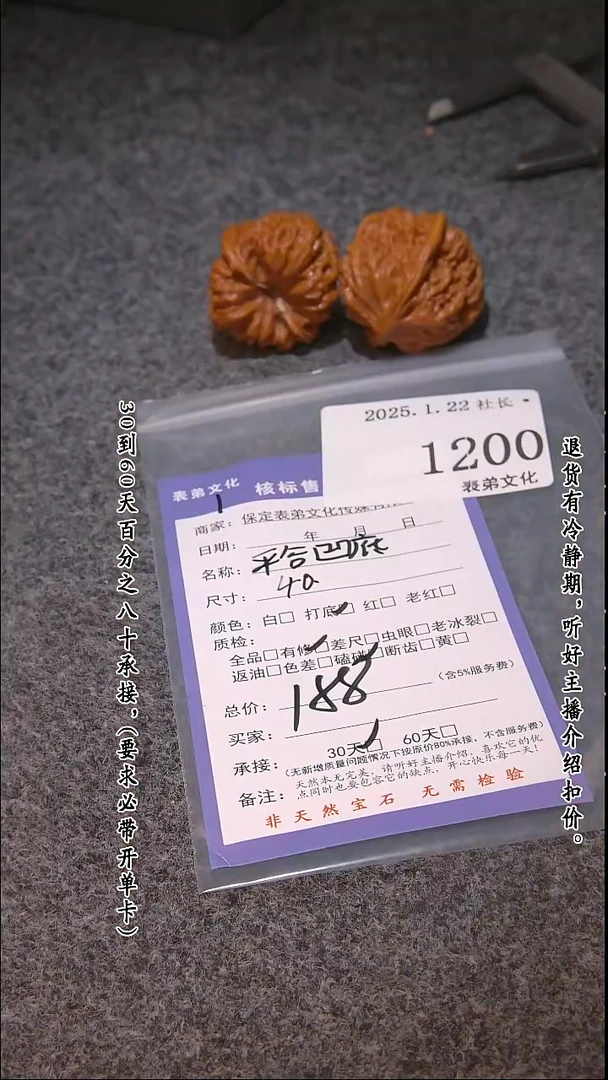 2025.1.22 社长
1200
表弟文化
表弟文化 核标售
1
商家：保定表弟文化传媒有限
日期： 年 月 日
名称：平合凹底
尺寸：40
颜色：白□ 打底□ 红□ 老红□
质检：
全品□有修□差尺□虫眼□老冰裂□
返油□色差□磕碰□断齿□黄□
总价：188 （含5%服务费）
买家：
承接：30天□ 60天□
（无新增质量问题情况下按原价80%承接，不含服务费）
备注：天然本无完美，请听好主播介绍，喜欢它的优
点同时也要包容它的缺点，开心快乐每一天！
非天然宝石 无需检验
退货有冷静期，听好主播介绍扣价。
30到60天百分之八十承接，（要求必带开单卡）